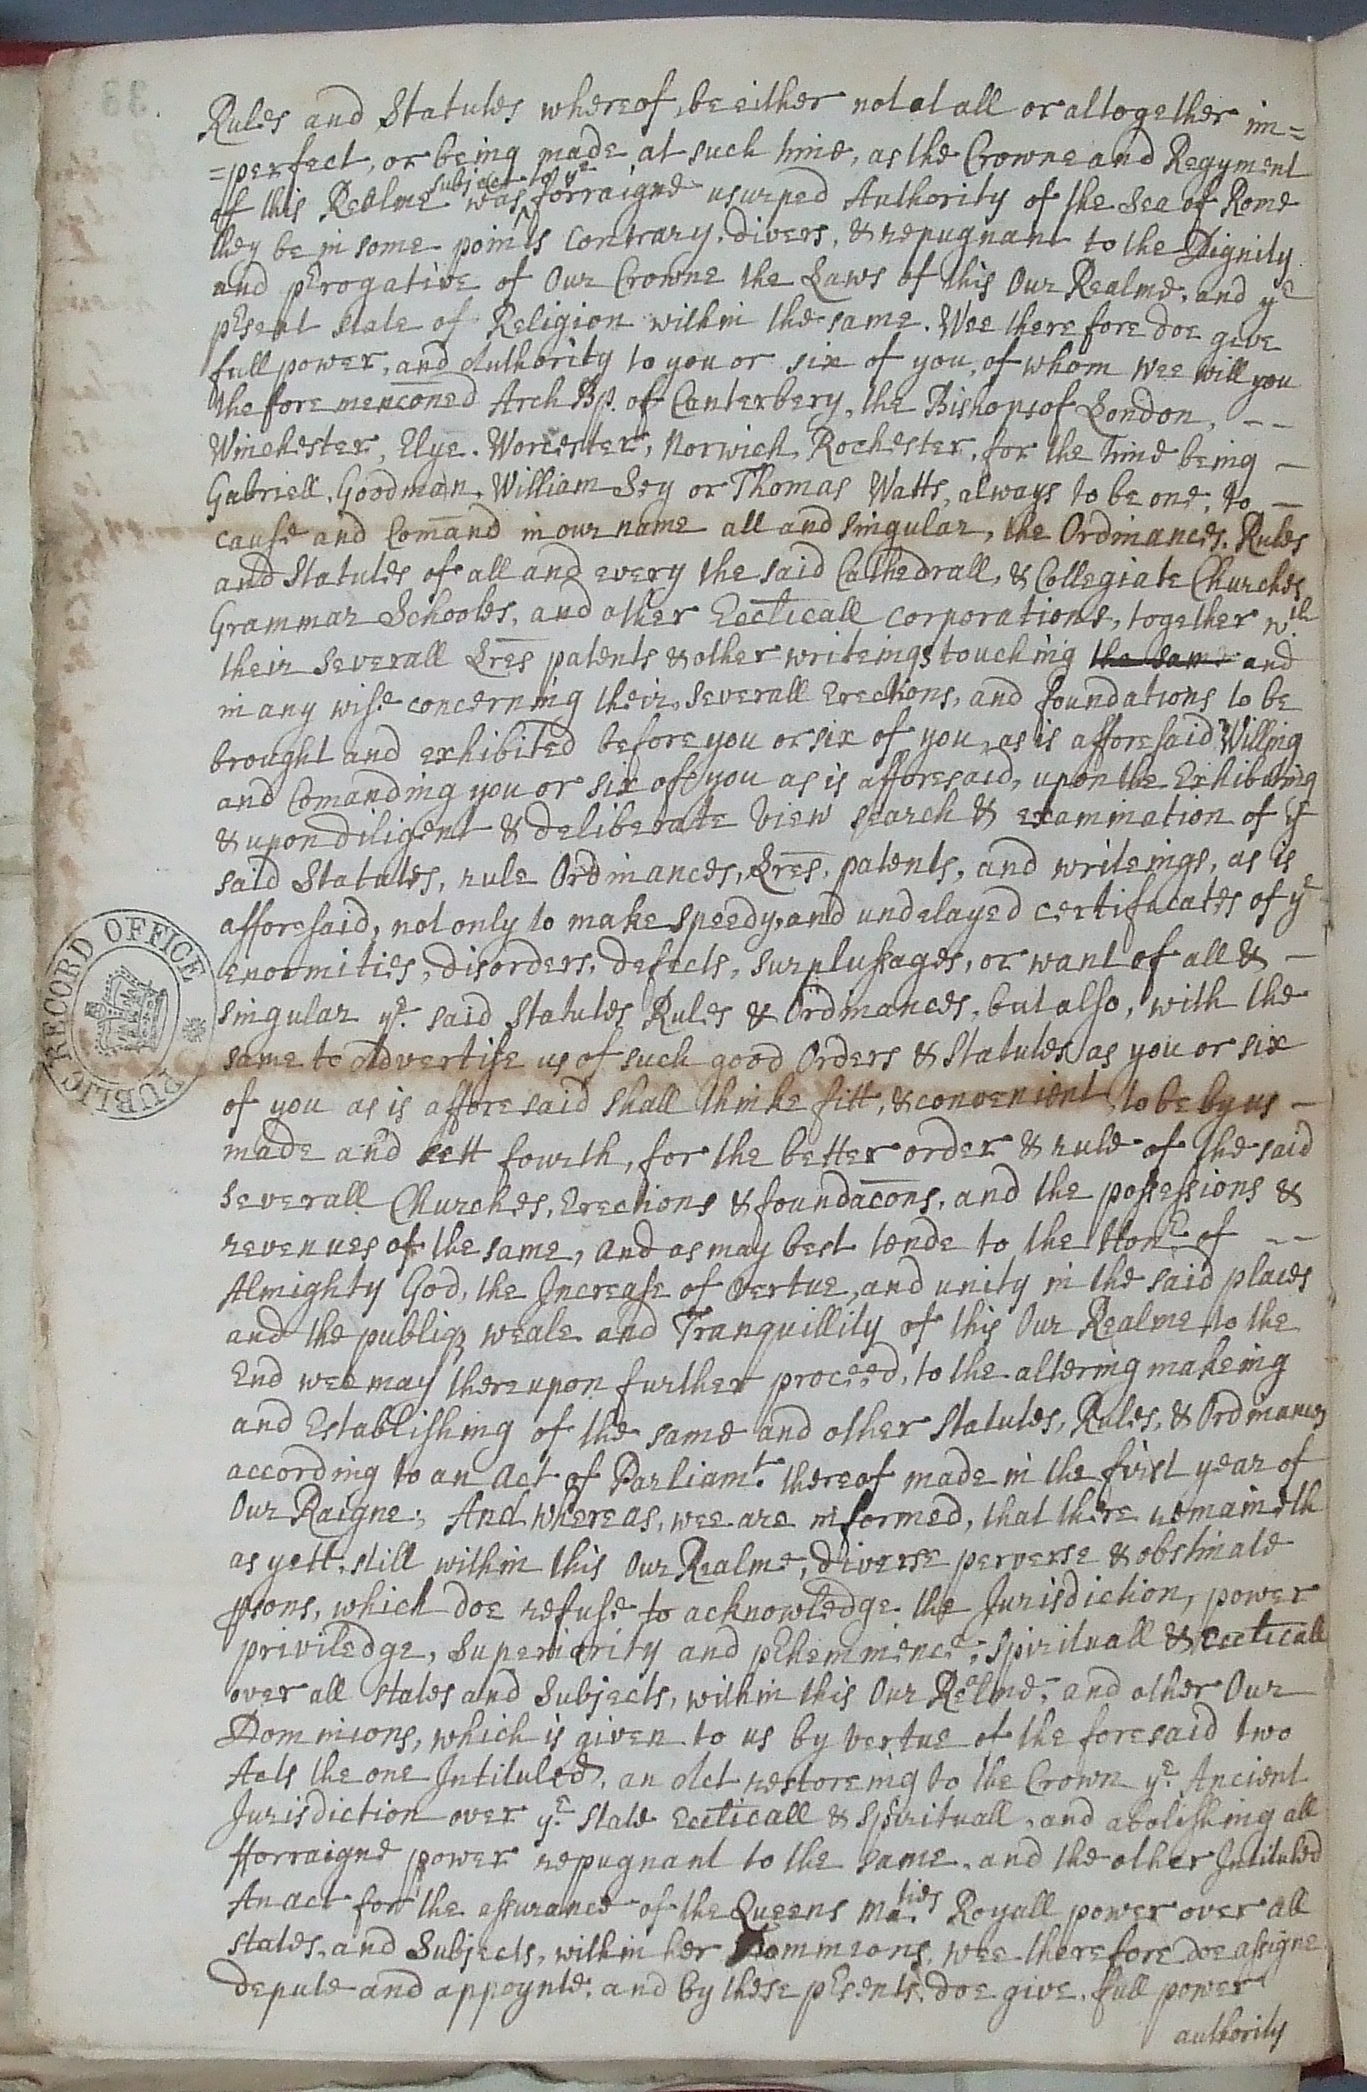 Rules and Statutes whereof, be either not at all or altogether im=
=perfect, or being made at such time, as the Crowne and Regyment
of this Realme was subject to ye forraigne usurped Authority of the Sea of Rome
they be in some points Contrary, divers, & repugnant to the Dignity
and pErogative of Our Crowne the Laws of this Our Realme, and ye
pEsent state of Religion within the same. Wee therefore doe give
full power, and Authority to you or six of you, of whom wee will you
the fore menconed Arch Bp. of Canterbery, the Bishops of London, --
Winchester, Elye. Worcester, Norwich, Rochester, for the time being -
Gabriell. Goodman, William Sey or Thomas Watts, always to be one, to -
cause and Comand in our name all and singular, the Ordinances. Rules
and Statutes of all and every the said Cathedrall, & Collegiate Churches
Grammar Schooles, and other Eccticall corporations, together wth
their severall Lres patents & other writeings touching the same and
in any wise concerning their severall Erections, and foundations to be
brought and exhibited before you or six of you, as is afforesaid Willing
and Comanding you or six of you as is afforesaid, upon the Exhibiting
& upon diligent & deliberate View search & examination of ye
said Statutes, rule Ordinances, Lres, patents, and writeings, as is
afforesaid, not only to make speedy, and undelayed certificates of ye
enormities, disorders, defects, surplussages, or want of all & -
singular ye said Statutes Rules & Ordinances, but also, with the
same to Advertise us of such good Orders & Statutes as you or six
of you as is afforesaid shall thinke fitt, & convenient, to be by us -
made and sett fourth, for the better order & rule of the said
severall Churches, Erections & foundacons, and the possessions &
revenues of the same, and as may best tende to the Honr of --
Almighty God, the Increase of Vertue, and unity in the said places
and the publiq weale and Tranquillity of this Our Realme to the
End wee may thereupon further proceed, to the altering makeing
and Establishing of the same and other Statutes, Rules, & Ordinances
according to an Act of Parliamt. thereof made in the first year of
Our Raigne; And whereas, wee are informed, that there remaineth
as yett still within this Our Realme, diverse perverse & obstinate
psons, which doe refuse to acknowledge the Jurisdiction, power
priviledge, Superiority and pEheminence, Spirituall & Eccticall
over all states and Subjects, within this Our Realme, and other Our
Dominions, which is given to us by vertue of the foresaid two
Acts the one Intituled, an Act restoreing to the Crown ye Ancient
Jurisdiction over ye State Eccticall & Spirituall, and abolishing all
fforraigne power repugnant to the same, and the other Intituled
An act for the assurance of the Queens Maties Royall power over all
states, and Subjects, within her Dominions, wee therefore doe assigne
depute and appoynte, and by these pEsents, doe give, full power
authority
PUBLIC RECORD OFFICE